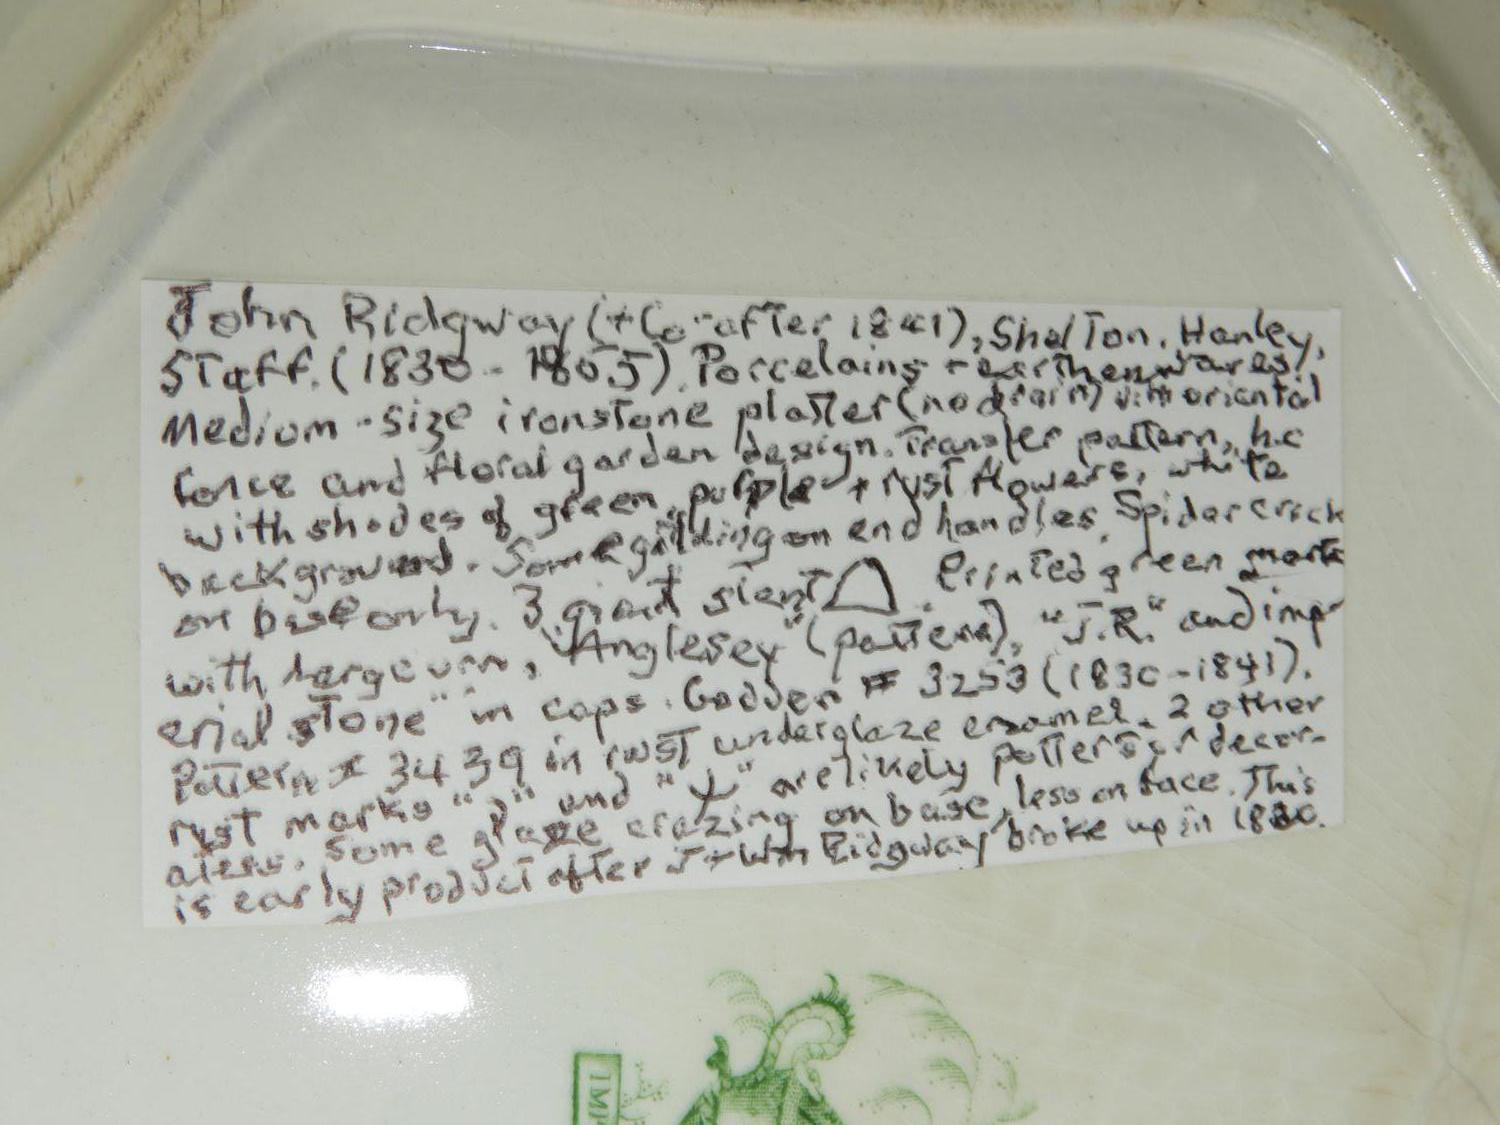 John Ridgway (+ Co. after 1841), Shelton, Hanley,
Staff. (1830 - 1855). Porcelains + earthenwares.
Medium-size ironstone platter (no drain) with oriental
fence and floral garden design. Transfer pattern, h.c
with shades of green, purple + rust flowers, white
background. Some gilding on end handles. Spider crack
on base only. 3 giant slent . Printed green mark
with large urn, "Anglesey" (pattern), "J.R." and imp-
erial stone" in caps. Godden # 3253 (1830-1841).
Pattern # 3439 in rust underglaze enamel. 2 other
rust marks " " and " " are likely potter's or decor-
aters. Some glaze crazing on base, less on face. This
is early product after J + Wm Ridgway broke up in 1830.
IM